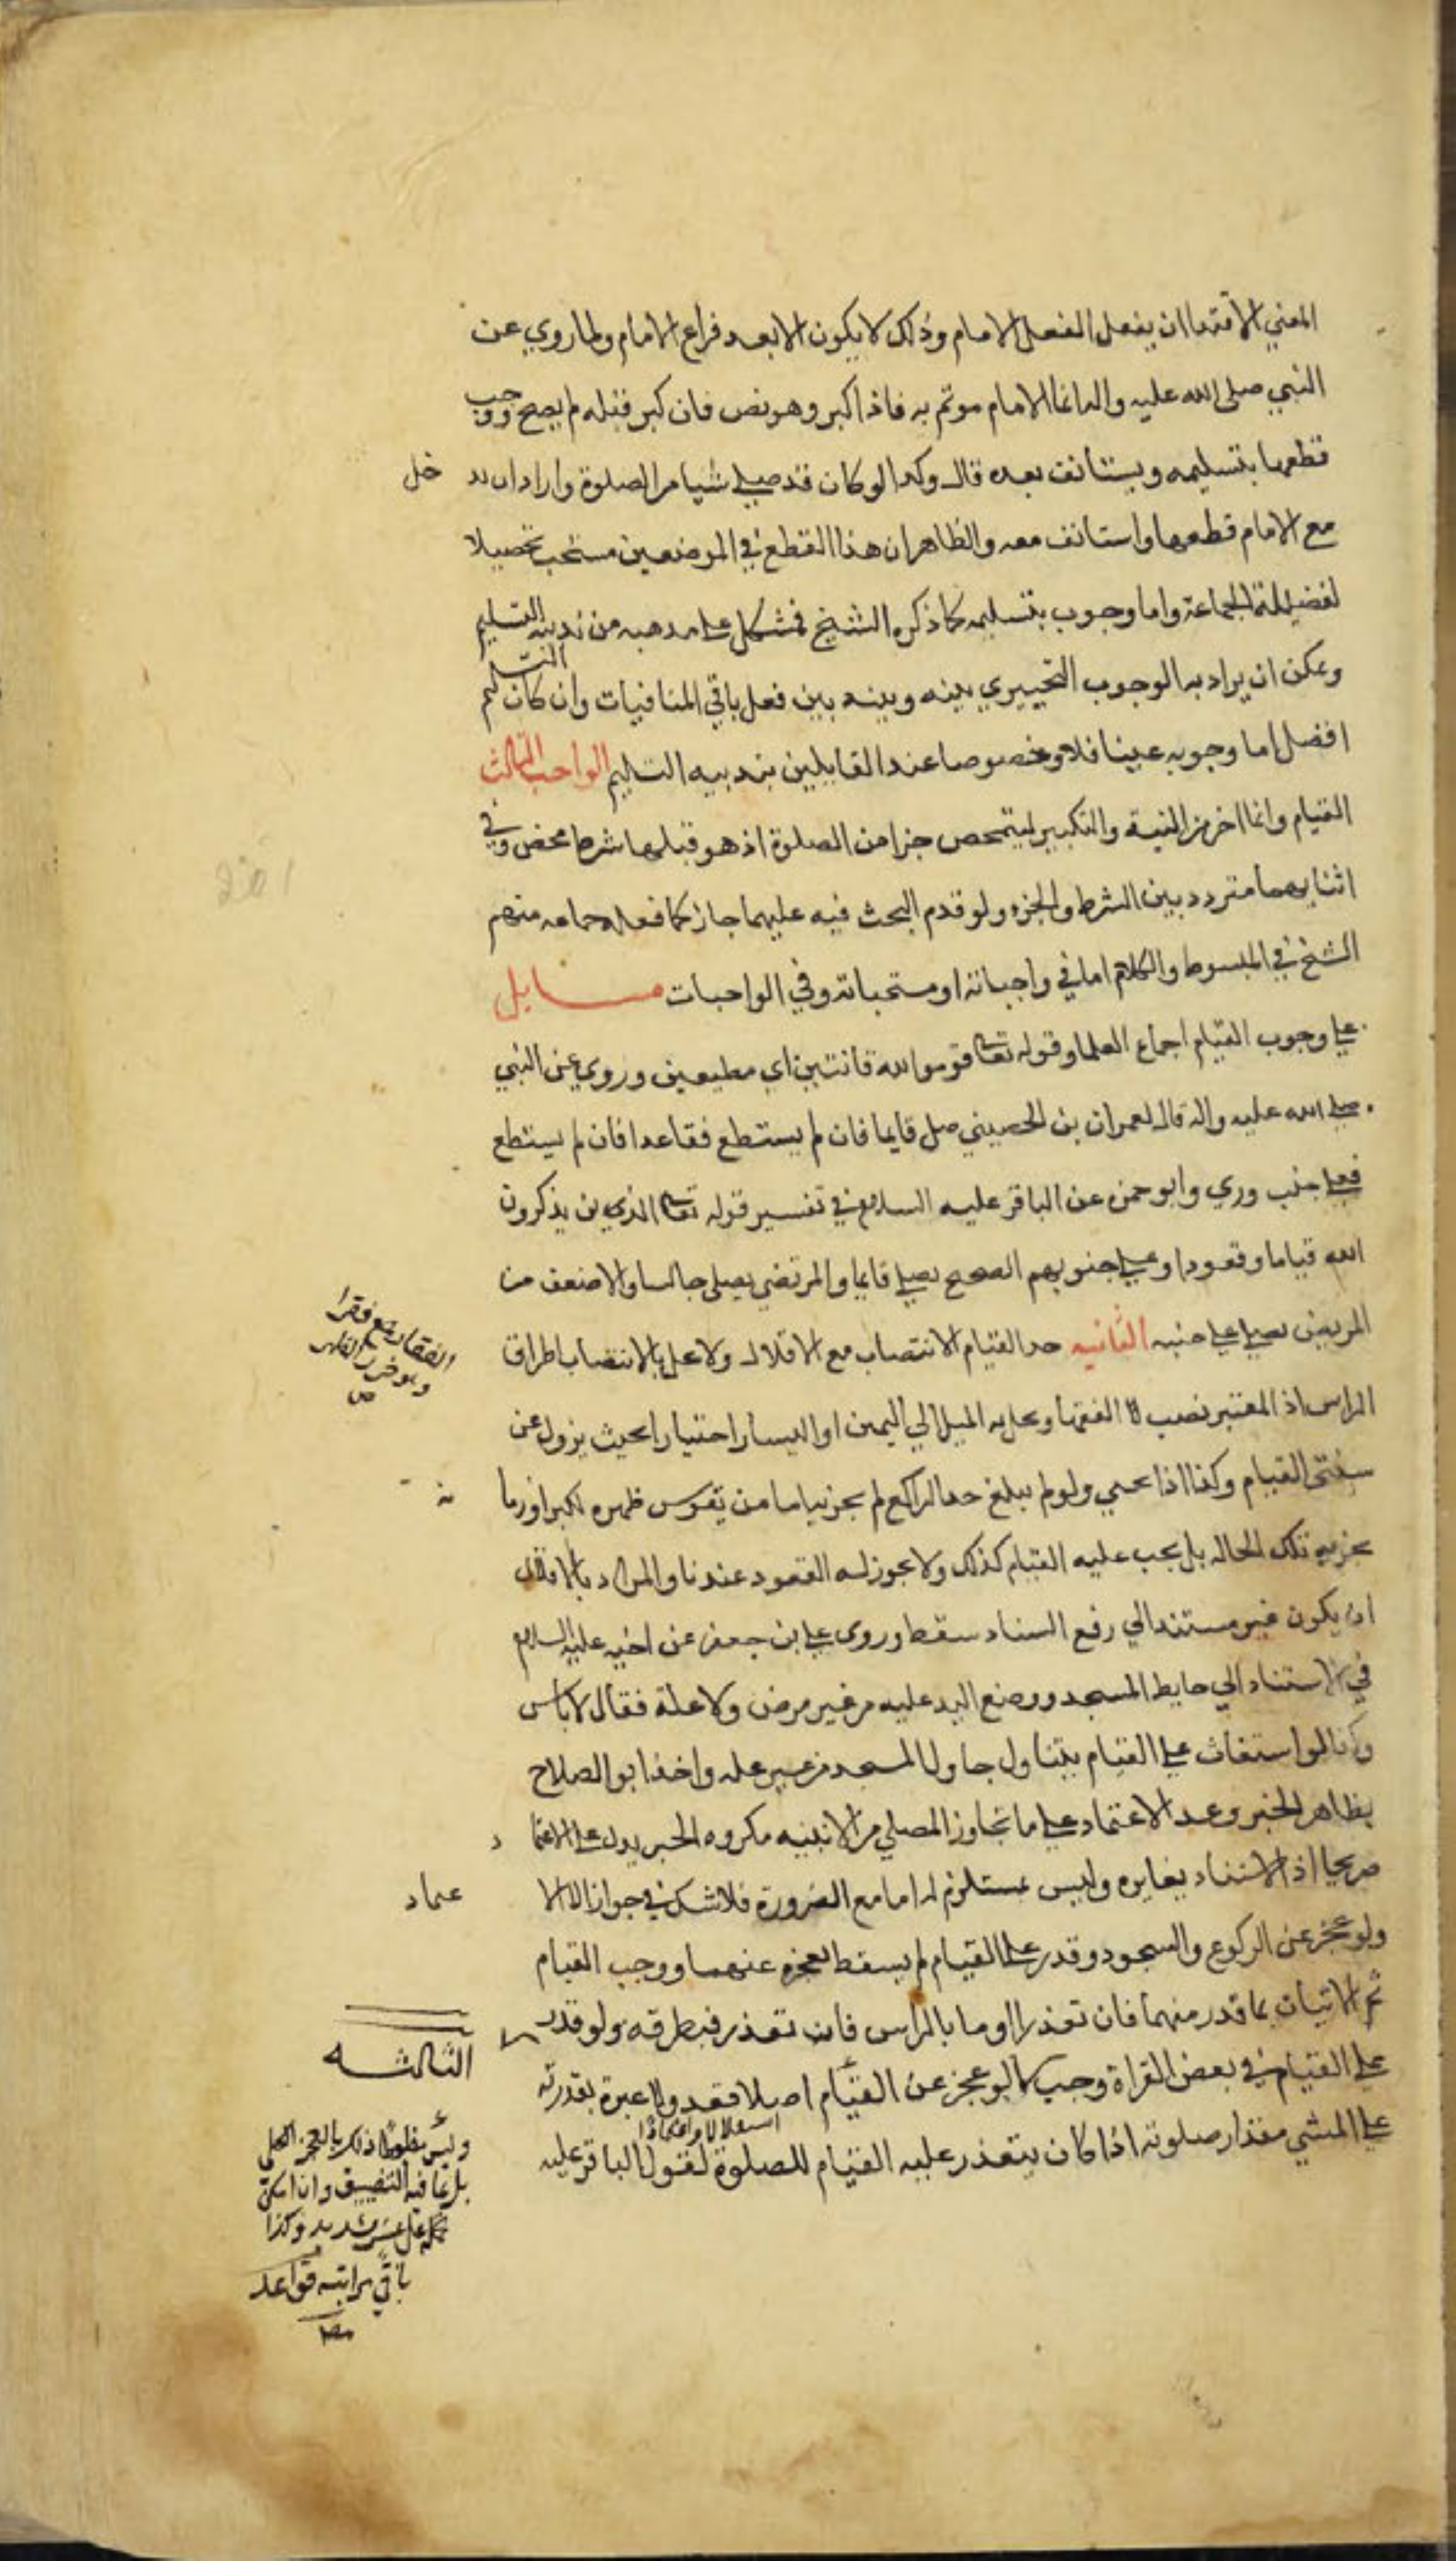 المعني الاقتدا ان يفعل الفعل الامام وذلك لا يكون الا بعد فراع الامام ولما روي عن
النبي صلى الله عليه واله انما الامام موتم به فاذا كبر وهو نص فان كبر قبله لم يصح ووجب
قطعها بتسليمه ويستانف بعده قال وكدا لو كان قد صلي شيا من الصلوة واراد ان يد خل
مع الامام قطعها واستانف معه والظاهر ان هذا القطع في الموضعين مستحب تحصيلا
لفضيلة الجماعة واما وجوب بتسليمه كما ذكره الشيخ فمشكل علي مدهبه من ندبيه التسليم
ويمكن ان يراد به الوجوب التخييري بينه وبينه بين فعل باقي المنافيات وان كان التسليم
افضل اما وجوبه عينا فلا وخصوصا عند القايلين بندبيه التسليم الواجب الثالث
القيام وانما اخر من النية والتكبير ليتمحص جزا من الصلوة اذ هو قبلها شرط محض وفي
اثنايهما متردد بين الشرط والجزء ولو قدم البحث فيه عليهما جاز كما فعله جماعه منهم
الشخ في المبسوط والكلام اما في واجباته او مستحباته وفي الواجبات مسايل
علي وجوب القيام اجماع العلما وقوله تعالى قوموا لله قانتين اي مطيعين وروي عن النبي
صلي الله عليه واله قال لعمران بن الحصيني صل قايما فان لم يستطع فقاعدا فان لم يستطع
فعلي جنب وروي وابو حمزه عن الباقر عليه السلام في تفسير قوله تعالى الذين يذكرون
الله قياما وقعودا وعلي جنوبهم الصحيح يصلي قايما والمرتضي يصلى جالسا والاضعف من
المريض يصلي علي جنبه الثانيه حد القيام الانتصاب مع الاقلال ولا يخل بالانتصاب اطراق
الراس اذ المعتبر نصب الفقها ويخل به الميل الي اليمين او اليسار اختيارا بحيث يزول عن
سنتى القيام وكذا اذا نحني ولو لم يبلغ حد الراكع لم يجز نيا اما من تقوس ظهره لكبر او زما نه
يجزيه تلك الحاله بل يجب عليه القيام كذلك ولا يجوز له القعود عندنا والمراد بالاقلال
ان يكون غير مستند الي رفع السناد سقط وروى علي بن جعفر عن اخيه عليه السلام
في الاستناد الي حايط المسجد ووضع اليد عليه من غير مرض ولا علة فقال لا باس
وكذا لو استغاث علي القيام بتناول جاول المسجد من غير عله واخذ ابو الصلاح
بظاهر الخبر وعد الاعتماد علي ما تجاوز المصلي من الانبنيه مكروه الخبر يدل علي الاعتما د
صريحا اذ الاستناد يغايره وليس مستلزم له اما مع الضرورة فلا شك في جواز الا
عماد
ولو عجز عن الركوع والسجود وقدر علي القيام لم يسقط لعجزه عنهما ووجب القيام
ثم الاتيان بما قدر منهما فان تعذرا اوما بالراس فان تعذر فبطرفه ولو قدر
علي القيام في بعض القراة وجب كما لو عجز عن القيام اصلا فقد ولا عبرة بقدرته
علي المشي مقدار صلوته اذا كان يتعذر عليه القيام للصلوة لقول الباقر عليه
الفقار جمع فقرا
وهو خرز الظهر
ص
الثالثه
وليس منظوطا ذلك بالعجز الكلي
باقي مراتبه قواعد